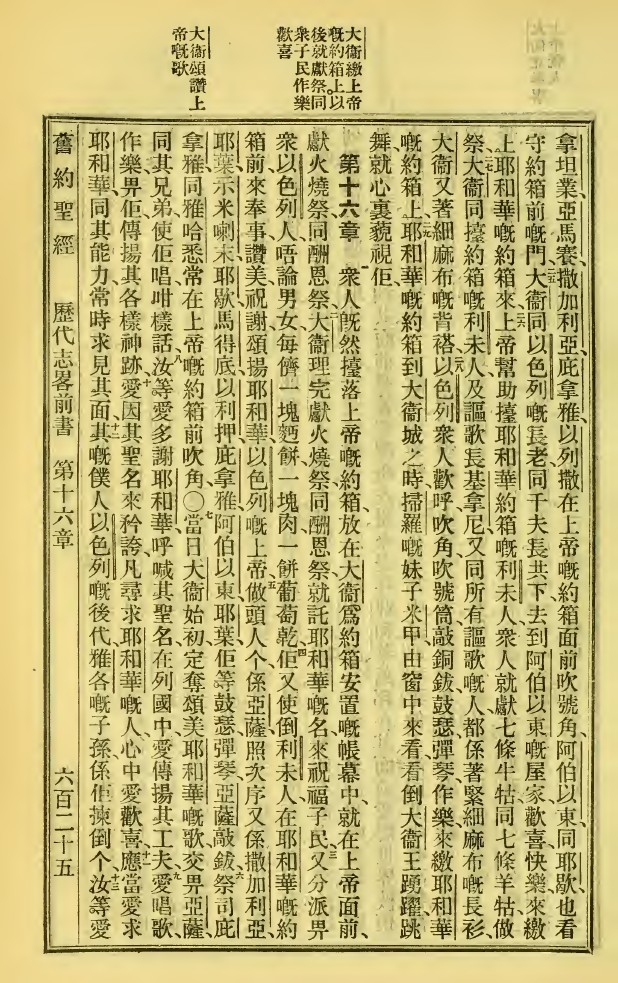 大衞繳上帝
嘅約箱上以
後就獻祭同
衆子民作樂
歡喜
大衞頌讚上
帝嘅歌
拿坦業、亞馬賽、撒加利亞、庇拿雅、以列撒在上帝嘅約箱面前吹號角、阿伯以東、同耶歇、也看
守約箱前嘅門、二五大衞同以色列嘅長老同千夫長共下去到阿伯以東嘅屋家歡喜快樂來繳
上耶和華嘅約箱來、二六上帝幫助擡耶和華約箱嘅利未人、衆人就獻七條牛牯同七條羊牯做
祭、二七大衞同擡約箱嘅利未人及謳歌長基拿尼又同所有謳歌嘅人都係著緊細麻布嘅長衫、
大衞又著細麻布嘅背褡、二八以色列衆人歡呼、吹角吹號筒、敲銅鈸鼓瑟彈琴作樂、來繳耶和華
嘅約箱上、二九耶和華嘅約箱到大衞城之時、掃羅嘅妹子米甲由窗中來看、看倒大衞王踴躍跳
舞就心裏藐視佢、
第十六章 一衆人旣然擡落上帝嘅約箱、放在大衞爲約箱安置嘅帳幕中、就在上帝面前、
獻火燒祭同酬恩祭、二大衞理完獻火燒祭同酬恩祭、就託耶和華嘅名來祝福子民、三又分派畀
衆以色列人、唔論男女、每儕一塊麪餅一塊肉一餅葡萄乾、四佢又使倒利未人在耶和華嘅約
箱前來奉事、讚美祝謝頌揚耶和華以色列嘅上帝、五做頭人个係亞薩、照次序又係撒加利亞、
耶葉、示米喇末、耶歇、馬得底、以利押、庇拿雅、阿伯以東、耶葉、佢等鼓瑟彈琴、亞薩敲鈸、六祭司庇
拿雅同雅哈悉常在上帝嘅約箱前吹角〇七當日大衞始初定奪頌美耶和華嘅歌、交畀亞薩、
同其兄弟、使佢唱咁樣話、八汝等愛多謝耶和華、呼喊其聖名、在列國中愛傳揚其工夫、九愛唱歌
作樂畀佢、傳揚其各樣神跡、十愛因其聖名來矜誇、凡尋求耶和華嘅人、心中愛歡喜、十一應當愛求
耶和華同其能力、常時求見其面、十二其嘅僕人以色列嘅後代、雅各嘅子孫、係佢揀倒个、十三汝等愛
舊約聖經 歷代志畧前書 第十六章 六百二十五